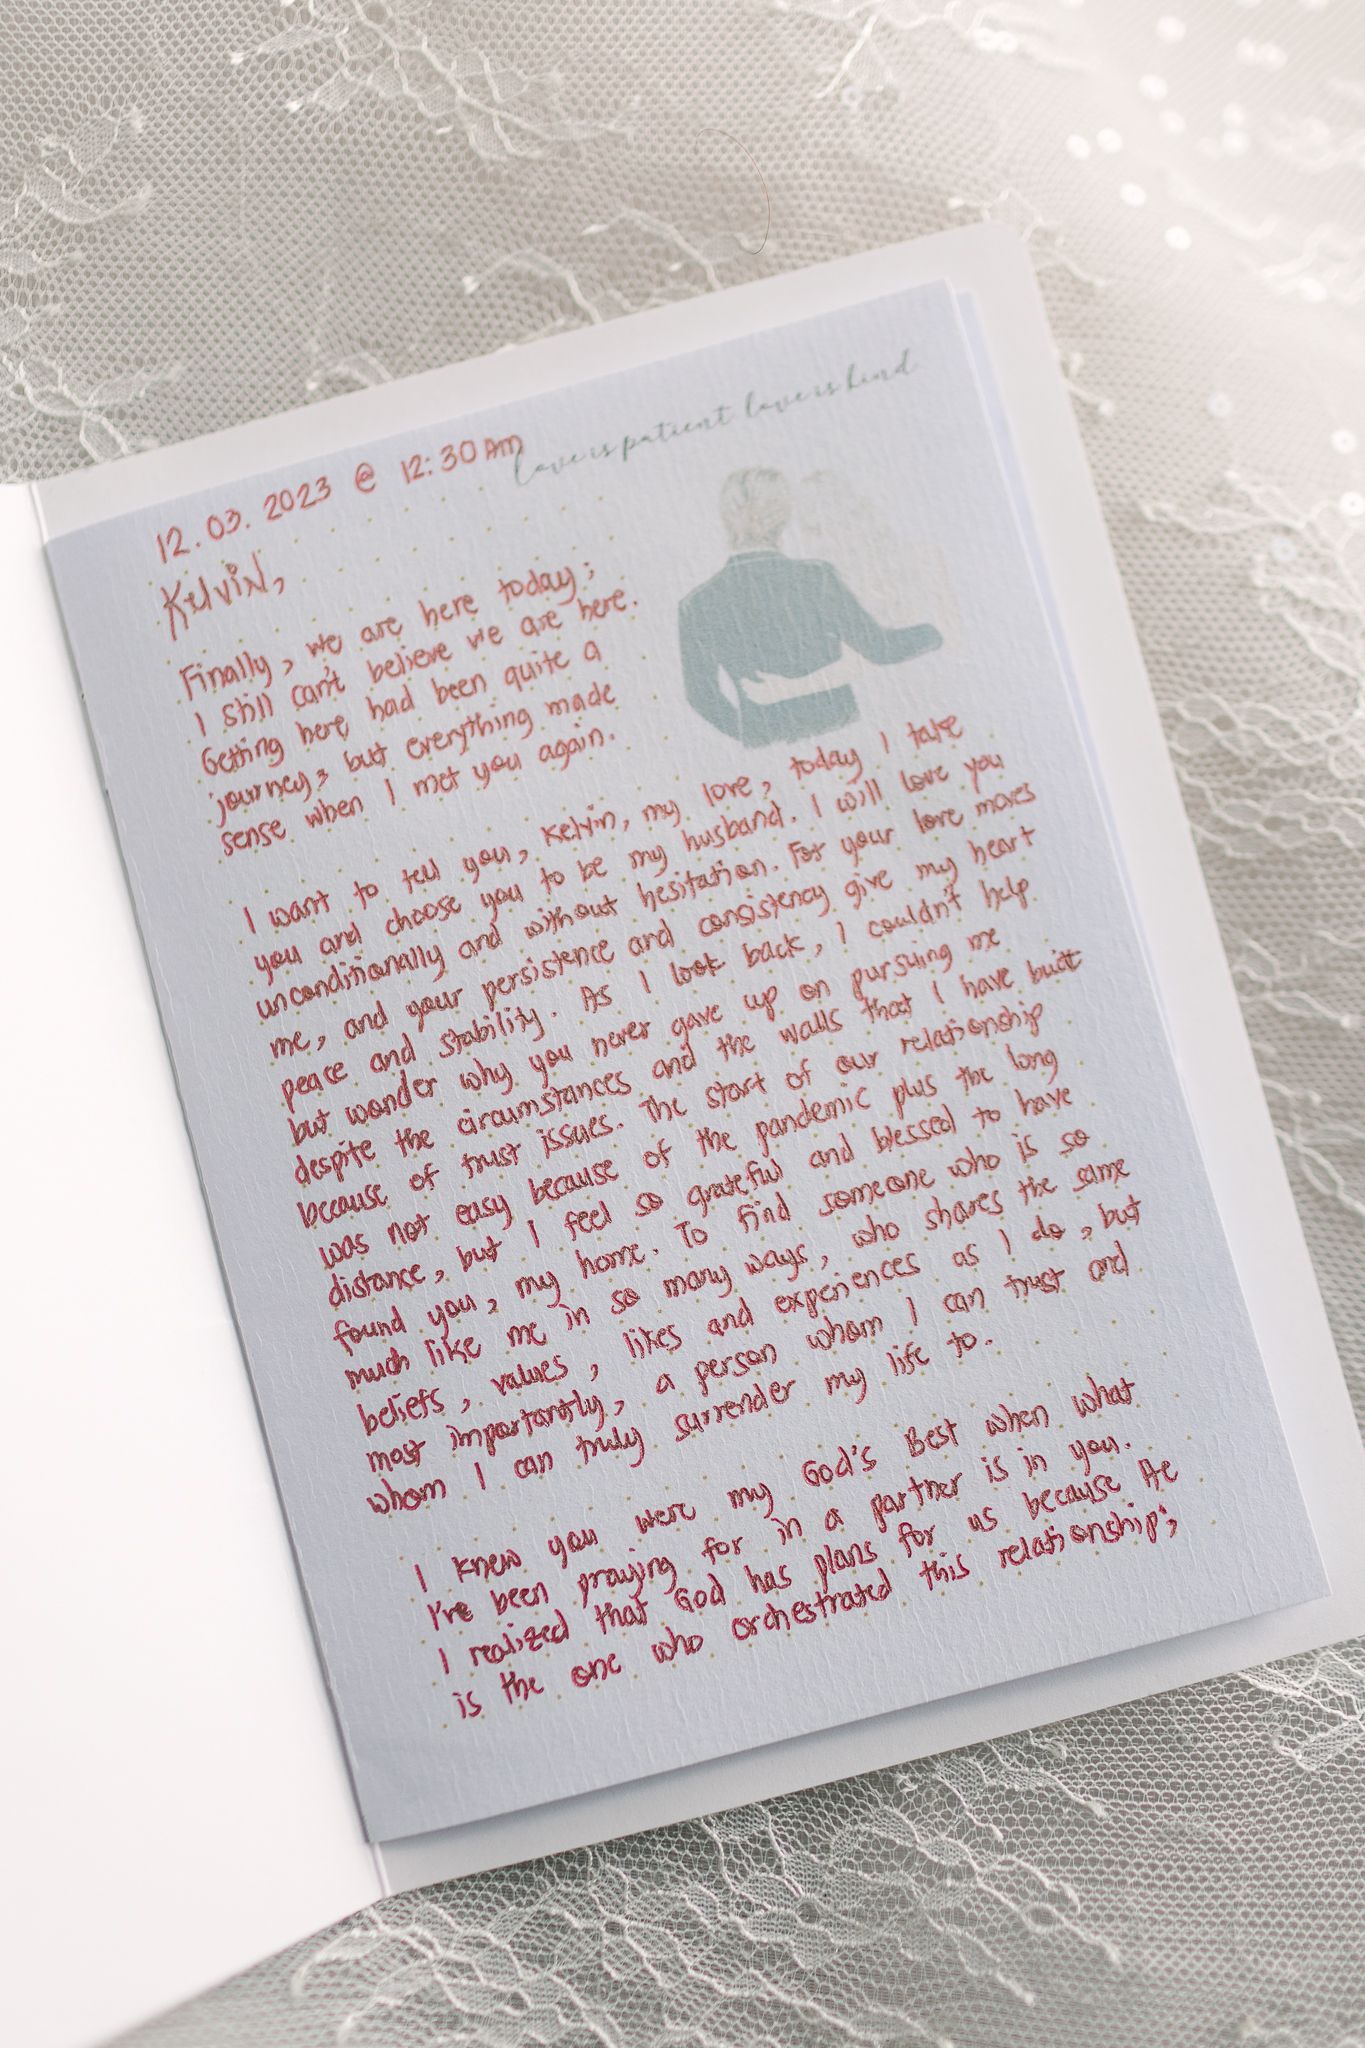 love is patient love is kind
12.03.2023 @ 12:30 Am
Kelvin,
Finally, we are here today;
I still can't believe we are here.
Getting here had been quite a
journey, but everything made
sense when I met you again.
I want to tell you, Kelvin, my love, today I take
you and choose you to be my husband. I will love you
unconditionally and without hesitation. For your love moves
me, and your persistence and consistency give my heart
peace and stability. As I look back, I couldn't help
but wonder why you never gave up on pursuing me
despite the circumstances and the walls that I have built
because of trust issues. The start of our relationship
was not easy because of the pandemic plus the long
distance, but I feel so grateful and blessed to have
found you, my home. To find someone who is so
much like me in so many ways, who shares the same
beliefs, values, likes and experiences as I do, but
most importantly, a person whom I can trust and
whom I can truly surrender my life to.
I knew you were my God's Best when what
I've been praying for in a partner is in you.
I realized that God has plans for us because He
is the one who orchestrated this relationship;